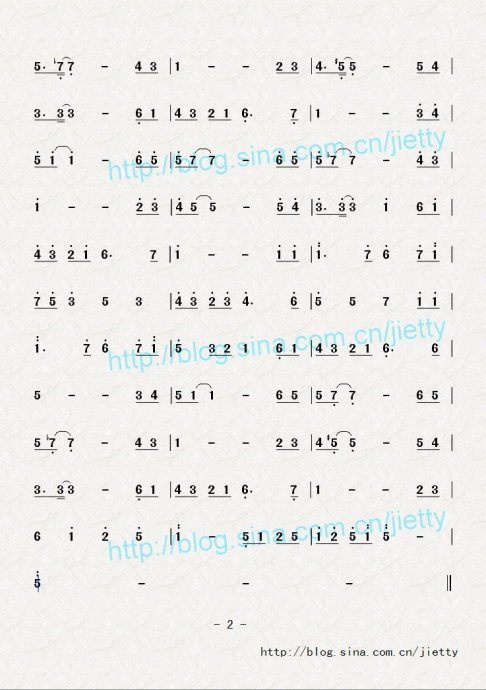 5. ♭7 7 - 4 3 | 1 - - 2 3 | 4. ♯5 5 - 5 4 |
3. 3 3 - 6 1 | 4 3 2 1 6. 7 | 1 - - 3 4 |
5 1 1 - 6 5 | 5 7 7 - 6 5 | 5 7 7 - 4 3 |
http://blog.sina.com.cn/jietty
1 - - 2 3 | 4 5 5 - 5 4 | 3. 3 3 1 6 1 |
4 3 2 1 6. 7 | 1 - - 1 1 | 1. 7 6 7 1 |
7 5 3 5 3 | 4 3 2 3 4. 6 | 5 5 7 1 1 |
1. 7 6 7 1 | 5 3 2 1 6 1 | 4 3 2 1 6. 6 |
http://blog.sina.com.cn/jietty
5 - - 3 4 | 5 1 1 - 6 5 | 5 7 7 - 6 5 |
5 7 7 - 4 3 | 1 - - 2 3 | 4 ♯5 5 - 5 4 |
3. 3 3 - 6 1 | 4 3 2 1 6. 7 | 1 - - 2 3 |
6 1 2 5 | 1 - 5 1 2 5 | 1 2 5 1 5 - |
http://blog.sina.com.cn/jietty
5 - - - ||
- 2 -
http://blog.sina.com.cn/jietty